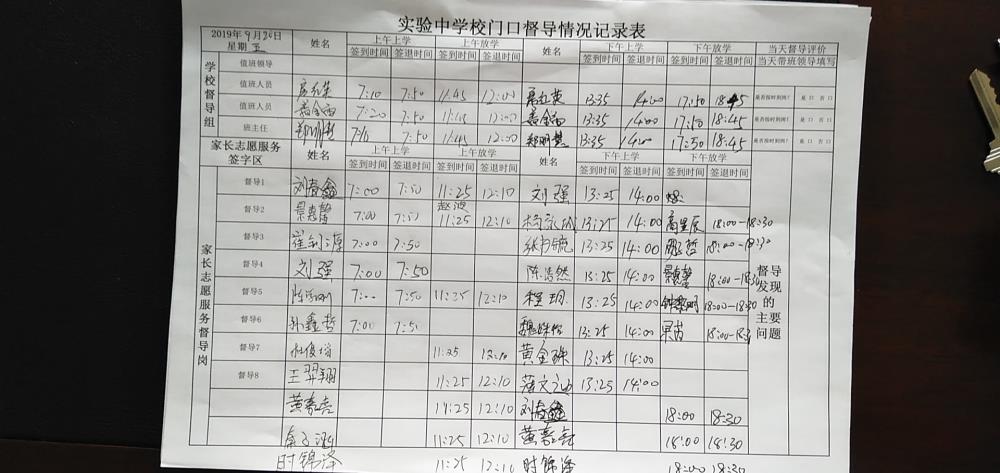 实验中学校门口督导情况记录表
2019年9月20日 星期五 姓名 上午上学 上午放学 姓名 下午上学 下午放学 当天督导评价
签到时间 签退时间 签到时间 签退时间 签到时间 签退时间 签到时间 签退时间 当天带班领导填写
学校督导组 值班领导
值班人员 7:10 7:50 11:45 12:00 13:35 14:00 17:50 18:45 是否按时到岗? 是 口 否 口
值班人员 7:20 7:50 11:45 12:00 13:35 14:00 17:50 18:45 是否按时到岗? 是 口 否 口
班主任 7:50 11:45 12:00 郑明慧 13:35 14:00 17:50 18:45 是否按时到岗? 是 口 否 口
家长志愿服务签字区 姓名 上午上学 上午放学 姓名 下午上学 下午放学
签到时间 签退时间 签到时间 签退时间 签到时间 签退时间 签到时间 签退时间
家长志愿服务督导岗 督导发现的主要问题
督导1 刘春鑫 7:00 7:50 11:25 12:10 刘强 13:25 14:00
督导2 景嘉馨 7:00 7:50 赵波 11:25 12:10 13:25 14:00 高星辰 18:00-18:30
督导3 7:00 7:50 13:25 14:00 18:00-18:30
督导4 刘强 7:00 7:50 陈浩然 13:25 14:00 18:00-18:30
督导5 7:00 7:50 11:25 12:10 程玥 13:25 14:00 18:00-18:30
督导6 孙鑫哲 7:00 7:50 13:25 14:00 18:00-18:30
督导7 11:25 12:10 黄金珠 13:25 14:00
督导8 王羿翔 11:25 12:10 13:25 14:00
黄嘉垚 11:25 12:10 刘春鑫 18:00 18:30
11:25 12:10 黄嘉垚 18:00 18:30
时锦泽 11:25 12:10 时锦泽 18:00 18:30